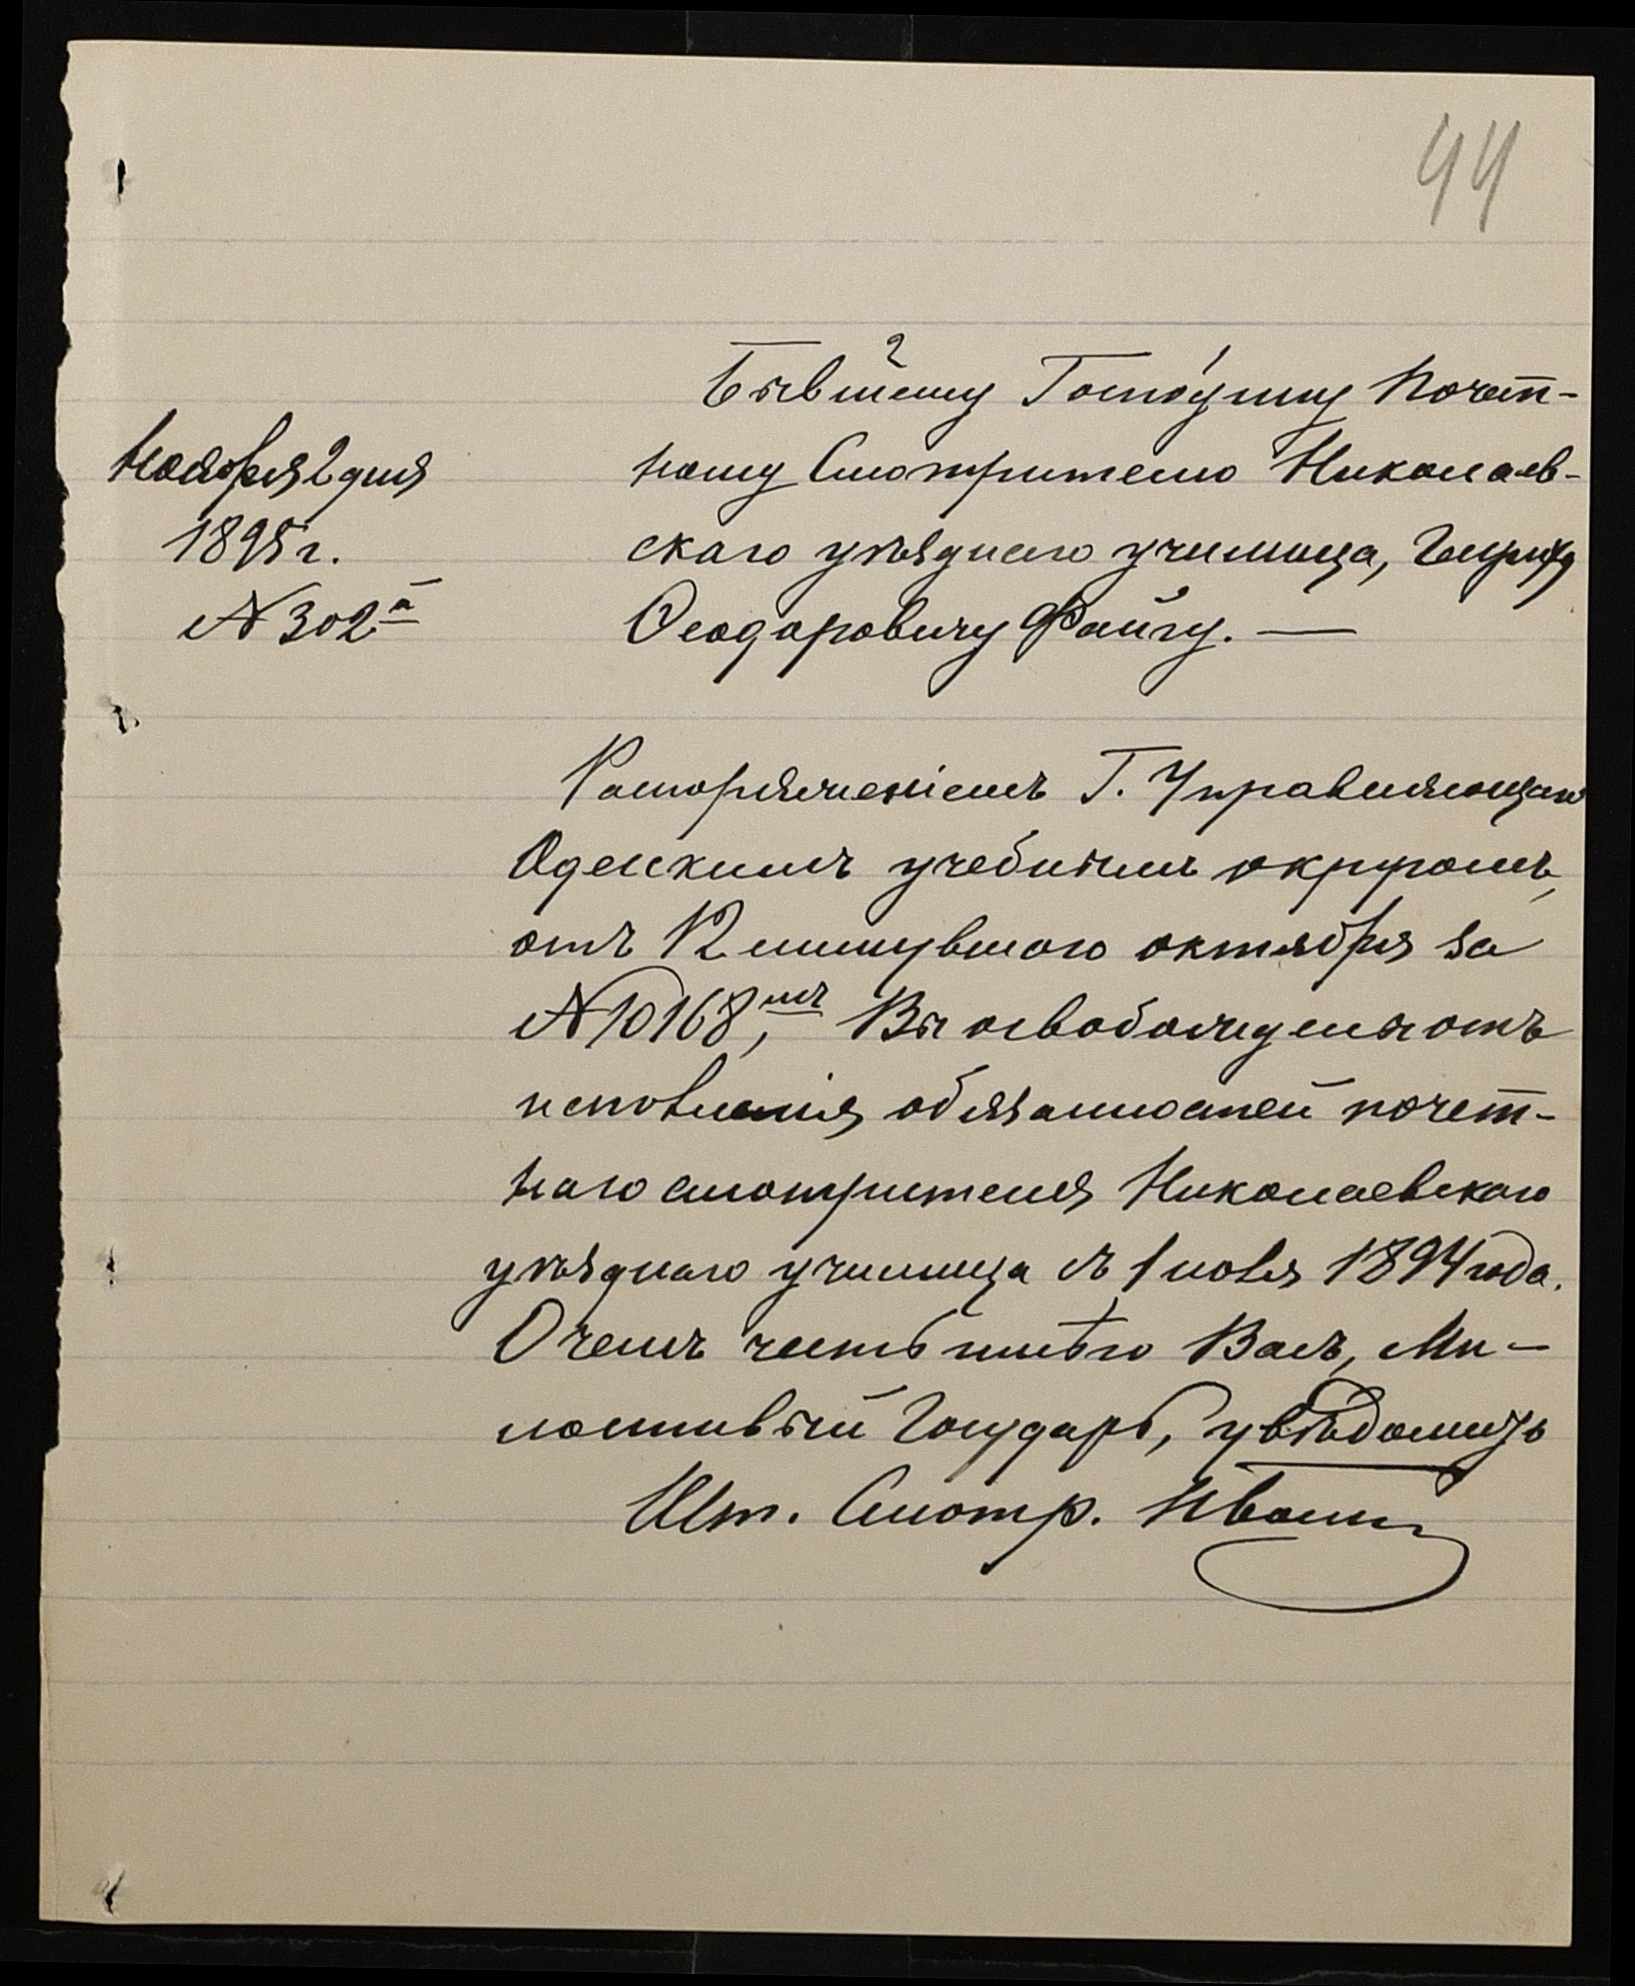 44
Бывшему Господину Почет-
ному Смотрителю Николаев-
скаго уѣзднаго училища, Генриху
Ѳеодоровичу Файгу. —
Ноября 2 дня
1895 г.
№ 302 а
Распоряженіемъ Г. Управляющаго
Одесскимъ учебнымъ округомъ,
отъ 12 минувшаго октября за
№ 10168,мъ Вы освобождены отъ
исполненія обязанностей почет-
наго смотрителя Николаевскаго
уѣзднаго училища съ 1 іюля 1894 года.
О чемъ честь имѣю Васъ, Ми-
лостивый Государь, увѣдомить
Шт. Смотр.